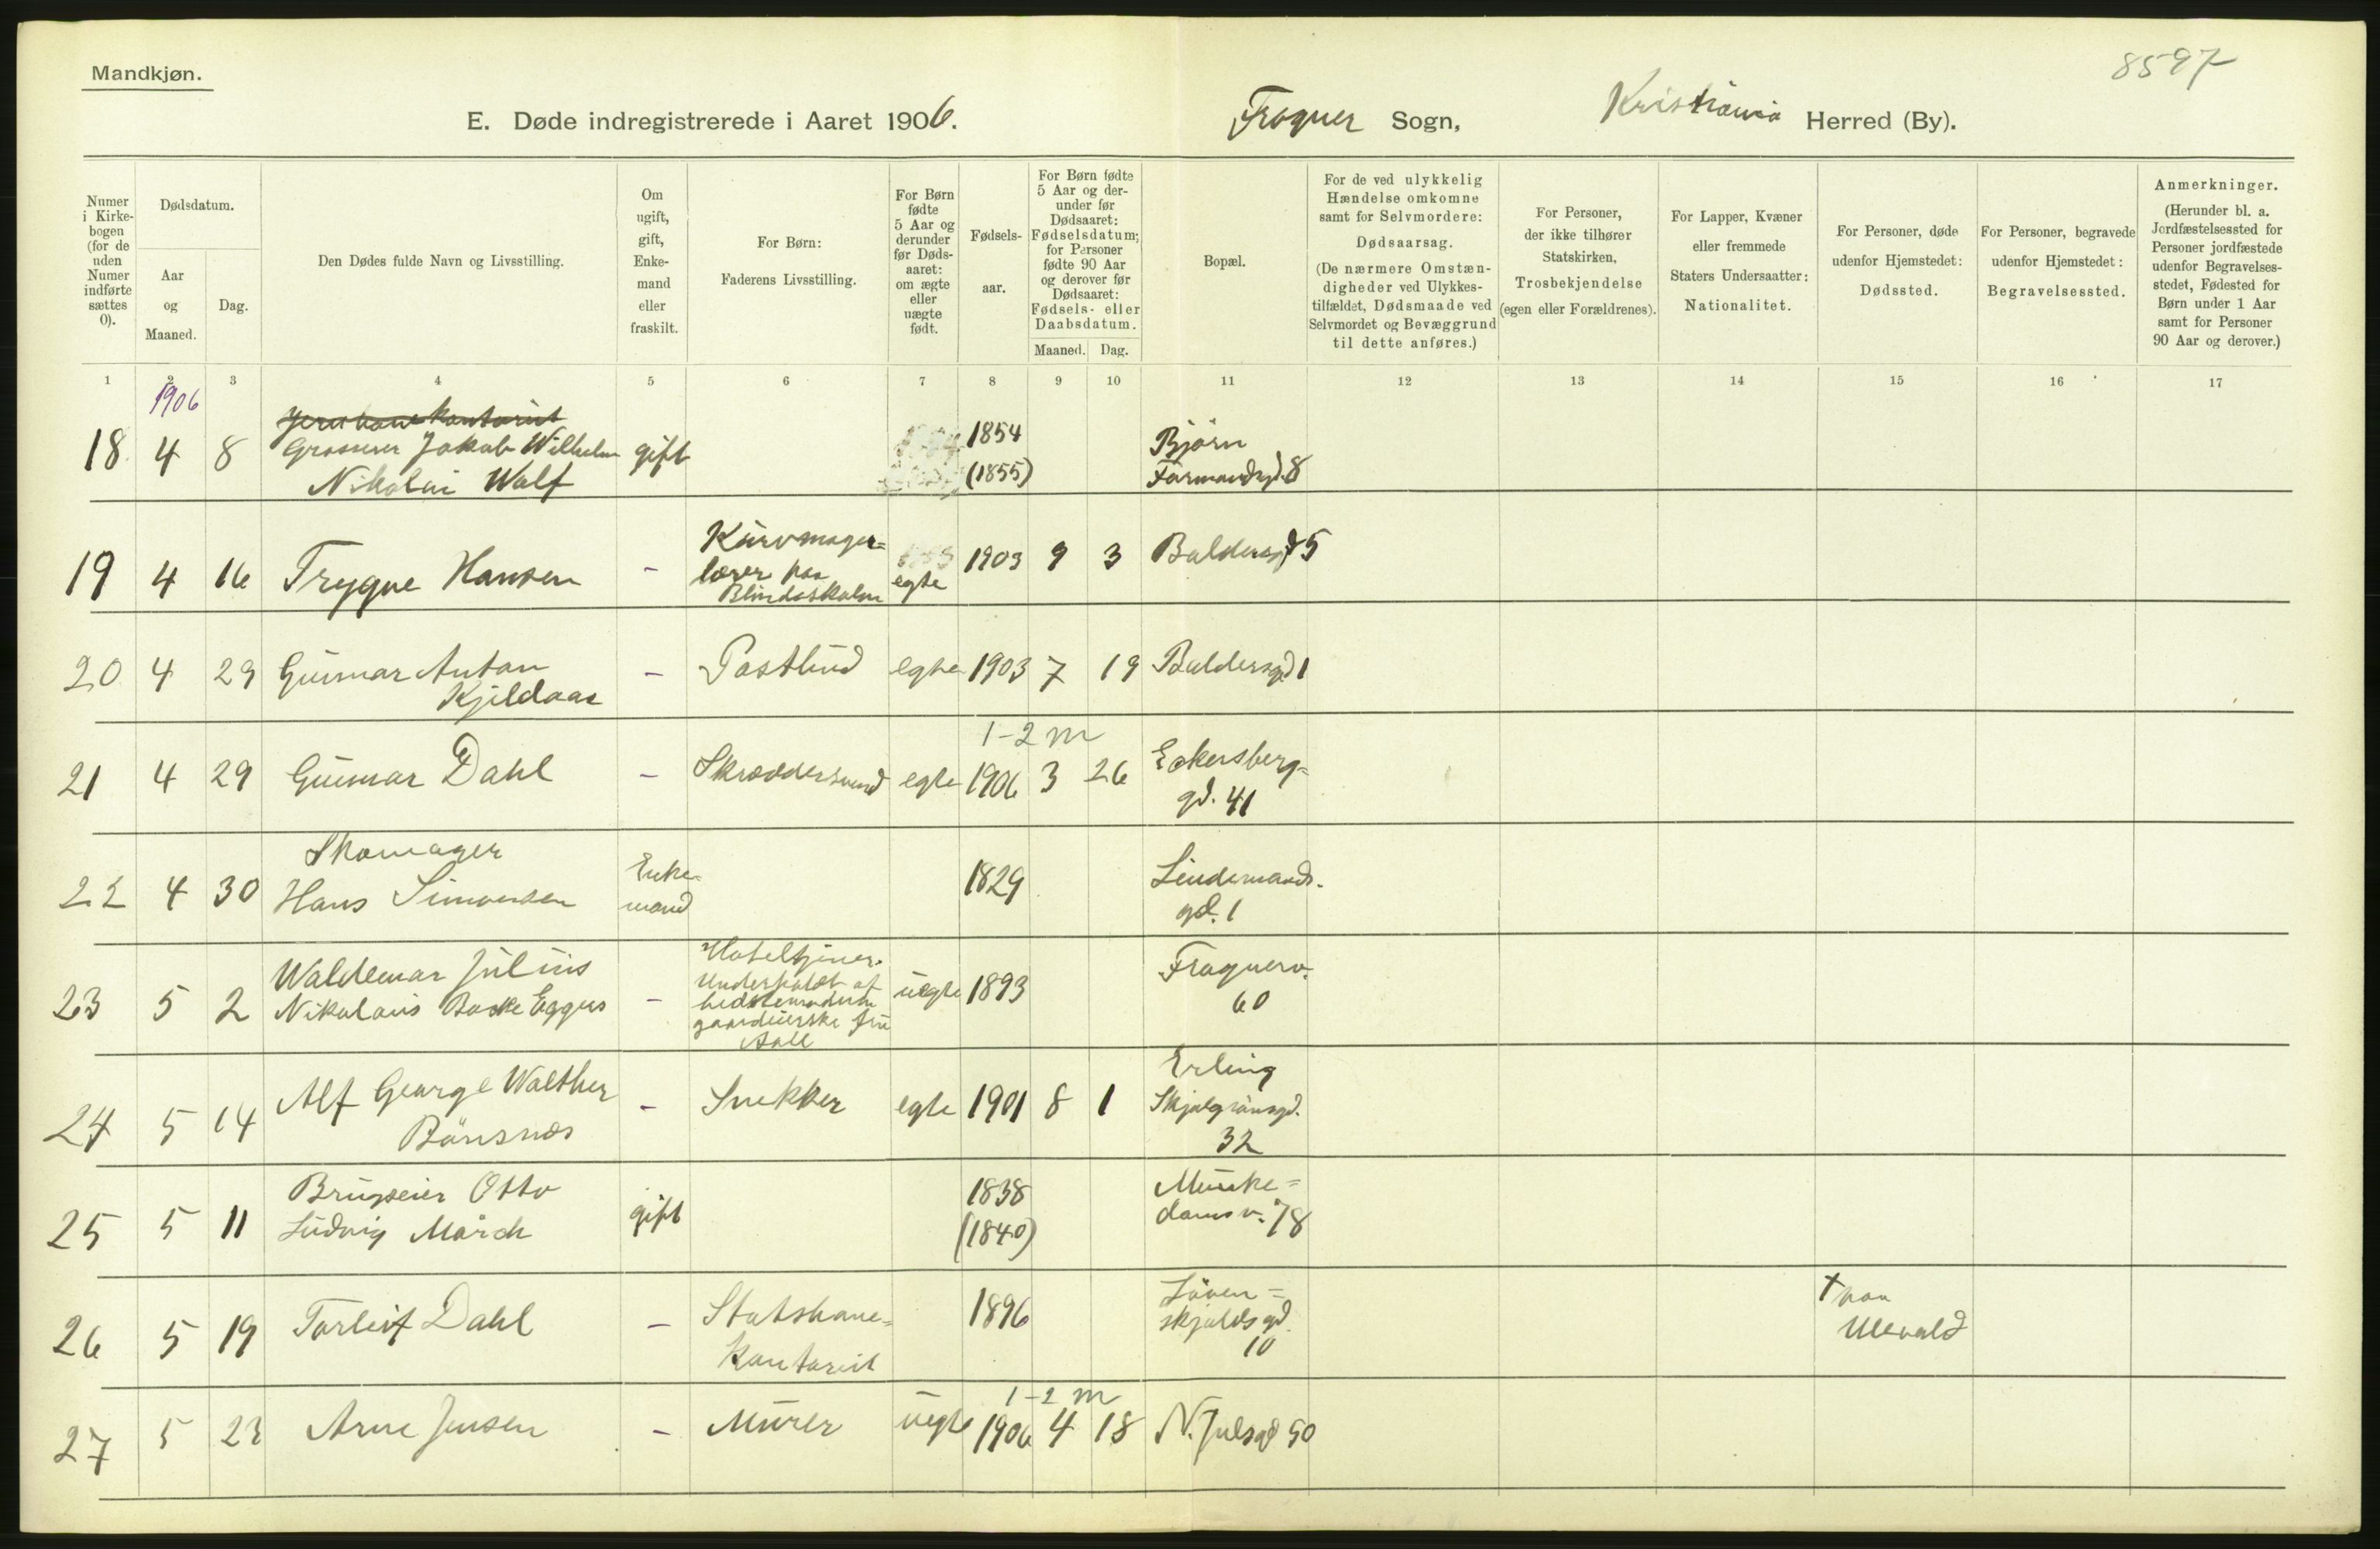 8597
Mandkjøn.
E. Døde indregistrerede i Aaret 1906. Frogner Sogn, Kristiania Herred (By).
Numer i Kirkebogen (for de uden Numer indførte sættes 0).
Dødsdatum.
Aar og Maaned.
Dag.
Den Dødes fulde Navn og Livsstilling.
Om ugift, gift, Enkemand eller fraskilt.
For Børn: Faderens Livsstilling.
For Børn fødte 5 Aar og derunder før Dødsaaret: om ægte eller uægte født.
Fødselsaar.
For Børn fødte 5 Aar og derunder før Dødsaaret: Fødselsdatum; for Personer fødte 90 Aar og derover før Dødsaaret: Fødsels- eller Daabsdatum.
Maaned. Dag.
Bopæl.
For de ved ulykkelig Hændelse omkomne samt for Selvmordere: Dødsaarsag. (De nærmere Omstændigheder ved Ulykkestilfældet, Dødsmaade ved Selvmordet og Bevæggrund til dette anføres.)
For Personer, der ikke tilhører Statskirken, Trosbekjendelse (egen eller Forældrenes).
For Lapper, Kvæner eller fremmede Staters Undersaatter: Nationalitet.
For Personer, døde udenfor Hjemstedet: Dødssted.
For Personer, begravede udenfor Hjemstedet: Begravelsessted.
Anmerkninger. (Herunder bl. a. Jordfæstelsessted for Personer jordfæstede udenfor Begravelsesstedet, Fødested for Børn under 1 Aar samt for Personer 90 Aar og derover.)
1 2 3 4 5 6 7 8 9 10 11 12 13 14 15 16 17
1906
Jernbanekontorist
18 4 8 Grosserer Jakob Wilhelm Nikolai Wolf gift 1854 (1855) Bjørn Farmandsgd. 8
19 4 16 Trygve Hansen - Kurvmagerlærer paa Blindeskolen egte 1903 9 3 Baldersgd 5
20 4 29 Gunnar Anton Kjeldaas - Postbud egte 1903 7 19 Baldersgd 1
1-2 m
21 4 29 Gunnar Dahl - Skræddersvend egte 1906 3 26 Eckersberggd. 41
22 4 30 Skomager Hans Simonsen Enkemand 1829 Lindemandsgd. 1
23 5 2 Waldemar Julius Nikolaus Boske Eggers - Hoteltjener. Underholdt af bedstemoderen gaardeierske fru Aall uegte 1893 Frognerv. 60
24 5 14 Alf George Walther Bönsnes - Snekker egte 1901 8 1 Erling Skjalgsönsgd. 32
25 5 11 Brugseier Otto Ludvig Mörch gift 1838 (1840) Munkedamsv. 78
26 5 19 Torleif Dahl - Statsbanekontorist 1896 Lövenskjoldsgd. 10 † paa Ullevold
1-2 m
27 5 23 Arne Jensen - Murer uegte 1906 4 18 N. Julsgd 50